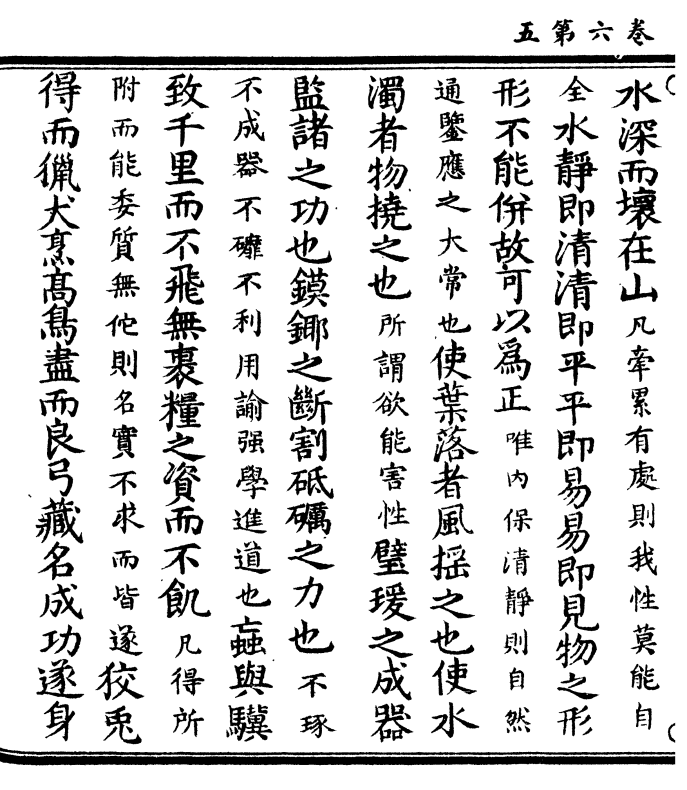 卷六第五
水深而壞在山凡牽累有處則我性莫能自
全水靜即清清即平平即易易即見物之形
形不能併故可以爲正唯內保清靜則自然
通鑒應之大常也使葉落者風搖之也使水
濁者物撓之也所謂欲能害性璧瑗之成器
監諸之功也鏌鎁之斷割砥礪之力也不琢
不成器不礲不利用諭强學進道也蝱與驥
致千里而不飛無裹糧之資而不飢凡得所
附而能委質無佗則名實不求而皆遂狡兎
得而獵犬烹高鳥盡而良弓藏名成功遂身